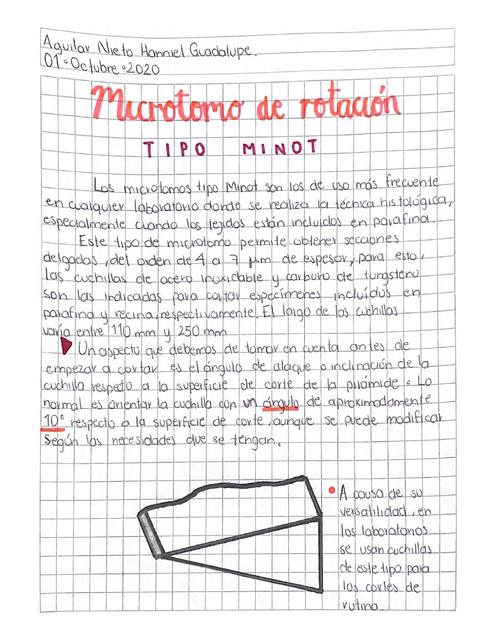 Aguilar Nieto Hanniel Guadalupe.
01•Octubre•2020
Microtomo de rotación
TIPO MINOT
Los microtomos tipo Minot son los de uso más frecuente
en cualquier laboratorio donde se realiza la técnica histológica,
especialmente cuando los tejidos están incluidos en parafina.
Este tipo de microtomo permite obtener secciones
delgadas, del orden de 4 a 7 µm de espesor, para esto,
las cuchillas de acero inoxidable y carburo de tungsteno
son las indicadas para cortar especímenes incluidos en
parafina y recina, respectivamente. El largo de las cuchillas
varía entre 110 mm y 250 mm
Un aspecto que debemos de tomar en cuenta antes de
empezar a cortar es el ángulo de ataque o inclinación de la
cuchilla respeto a la superficie de corte de la pirámide. Lo
normal es orientar la cuchilla con un ángulo de aproximadamente
10° respecto a la superficie de corte, aunque se puede modificar
según las necesidades que se tengan.
• A causa de su
versatilidad, en
los laboratorios
se usan cuchillas
de este tipo para
los cortes de
rutina.